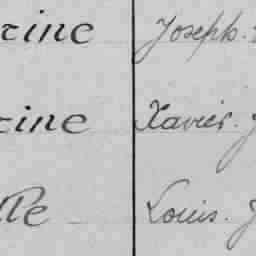 rine Joseph.
rine Xavier. J
lle Louis. J